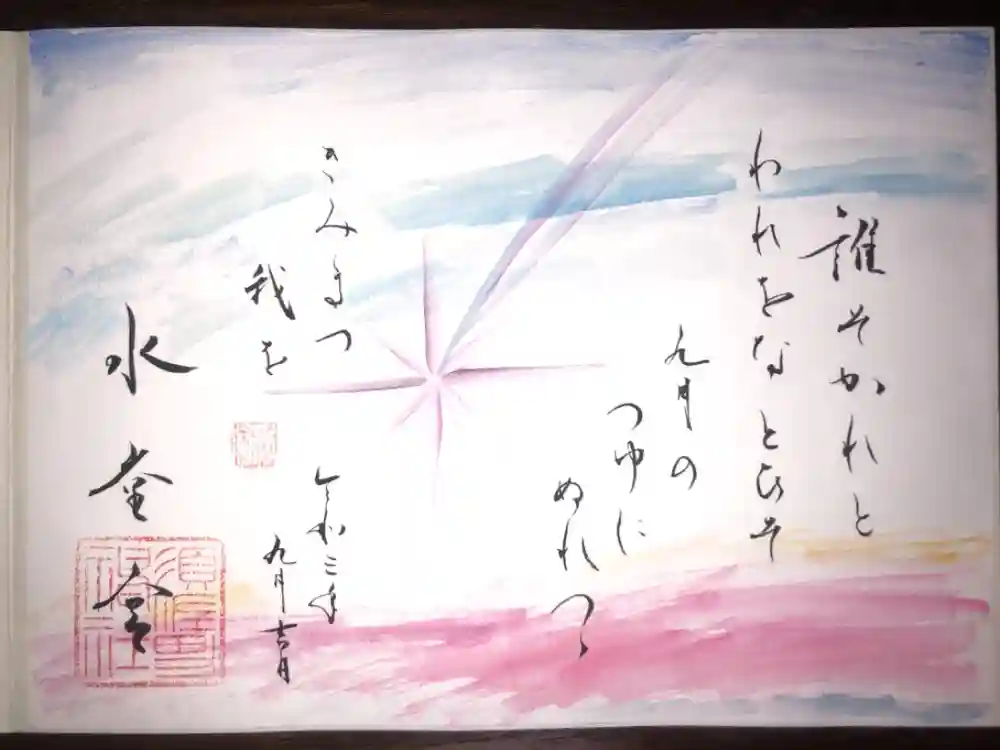 誰そかれと
われをなとひそ
九月の
つゆに
ぬれつゝ
きみまつ
我を
令和三年
九月吉日
水堂
須佐男
神社